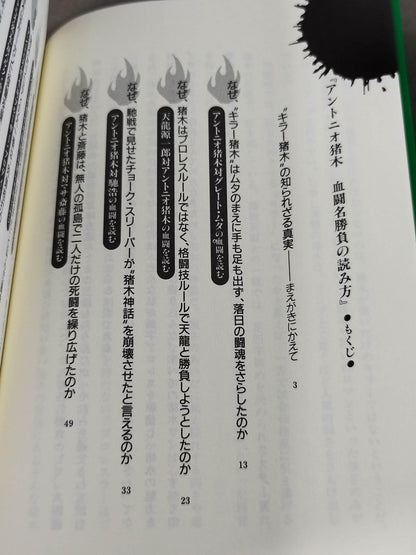 『アントニオ猪木 血闘名勝負の読み方』●もくじ●
“キラー猪木”の知られざる真実――まえがきにかえて 3
なぜ、“キラー猪木”はムタのまえに手も足も出ず、落日の闘魂をさらしたのか 13
アントニオ猪木対グレート・ムタの血闘を読む
なぜ、猪木はプロレスルールではなく、格闘技ルールで天龍と勝負しようとしたのか 23
天龍源一郎対アントニオ猪木の血闘を読む
なぜ、馳戦で見せたチョーク・スリーパーが“猪木神話”を崩壊させたと言えるのか 33
アントニオ猪木対馳浩の血闘を読む
なぜ、猪木と斎藤は、無人の孤島で二人だけの死闘を繰り広げたのか 49
アントニオ猪木対マサ斎藤の血闘を読む